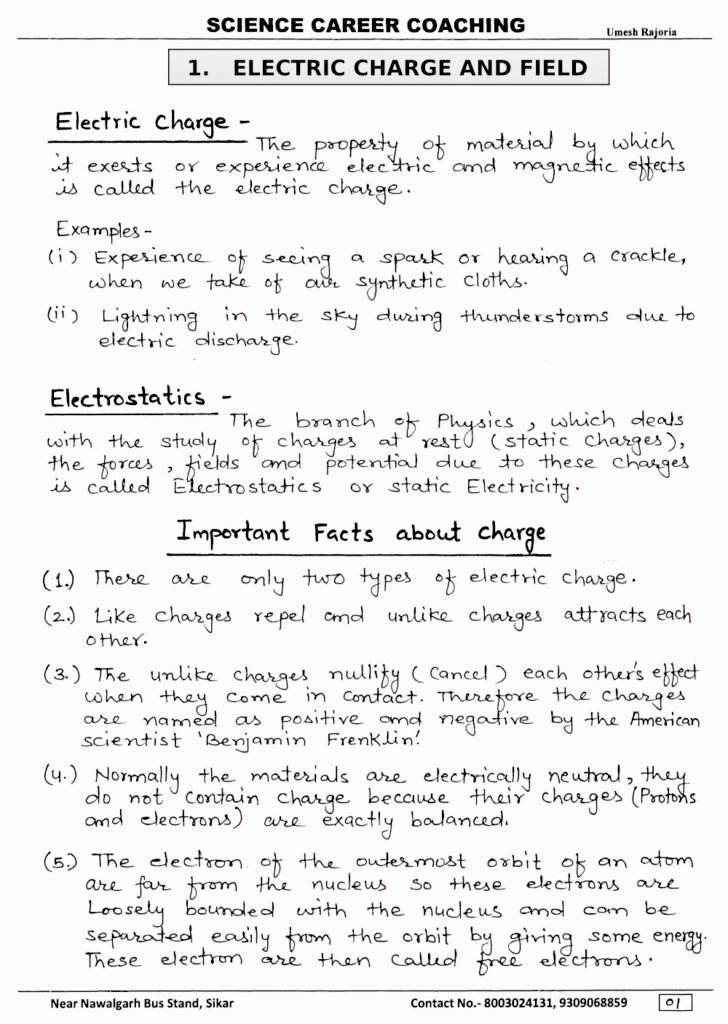 SCIENCE CAREER COACHING
Umesh Rajoria
1. ELECTRIC CHARGE AND FIELD
Electric Charge -
The property of material by which
it exerts or experience electric and magnetic effects
is called the electric charge.
Examples -
(i) Experience of seeing a spark or hearing a crackle,
when we take of our synthetic cloths.
(ii) Lightning in the sky during thunderstorms due to
electric discharge.
Electrostatics -
The branch of Physics, which deals
with the study of charges at rest (static charges),
the forces, fields and potential due to these charges
is called Electrostatics or static Electricity.
Important Facts about charge
(1.) There are only two types of electric charge.
(2.) Like charges repel and unlike charges attracts each
other.
(3.) The unlike charges nullify (Cancel) each other's effect
when they come in contact. Therefore the charges
are named as positive and negative by the American
scientist 'Benjamin Frenklin'.
(4.) Normally the materials are electrically neutral, they
do not contain charge because their charges (Protons
and electrons) are exactly balanced.
(5.) The electron of the outermost orbit of an atom
are far from the nucleus so these electrons are
Loosely bounded with the nucleus and can be
separated easily from the orbit by giving some energy.
These electron are then called free electrons.
Near Nawalgarh Bus Stand, Sikar
Contact No.- 8003024131, 9309068859
01